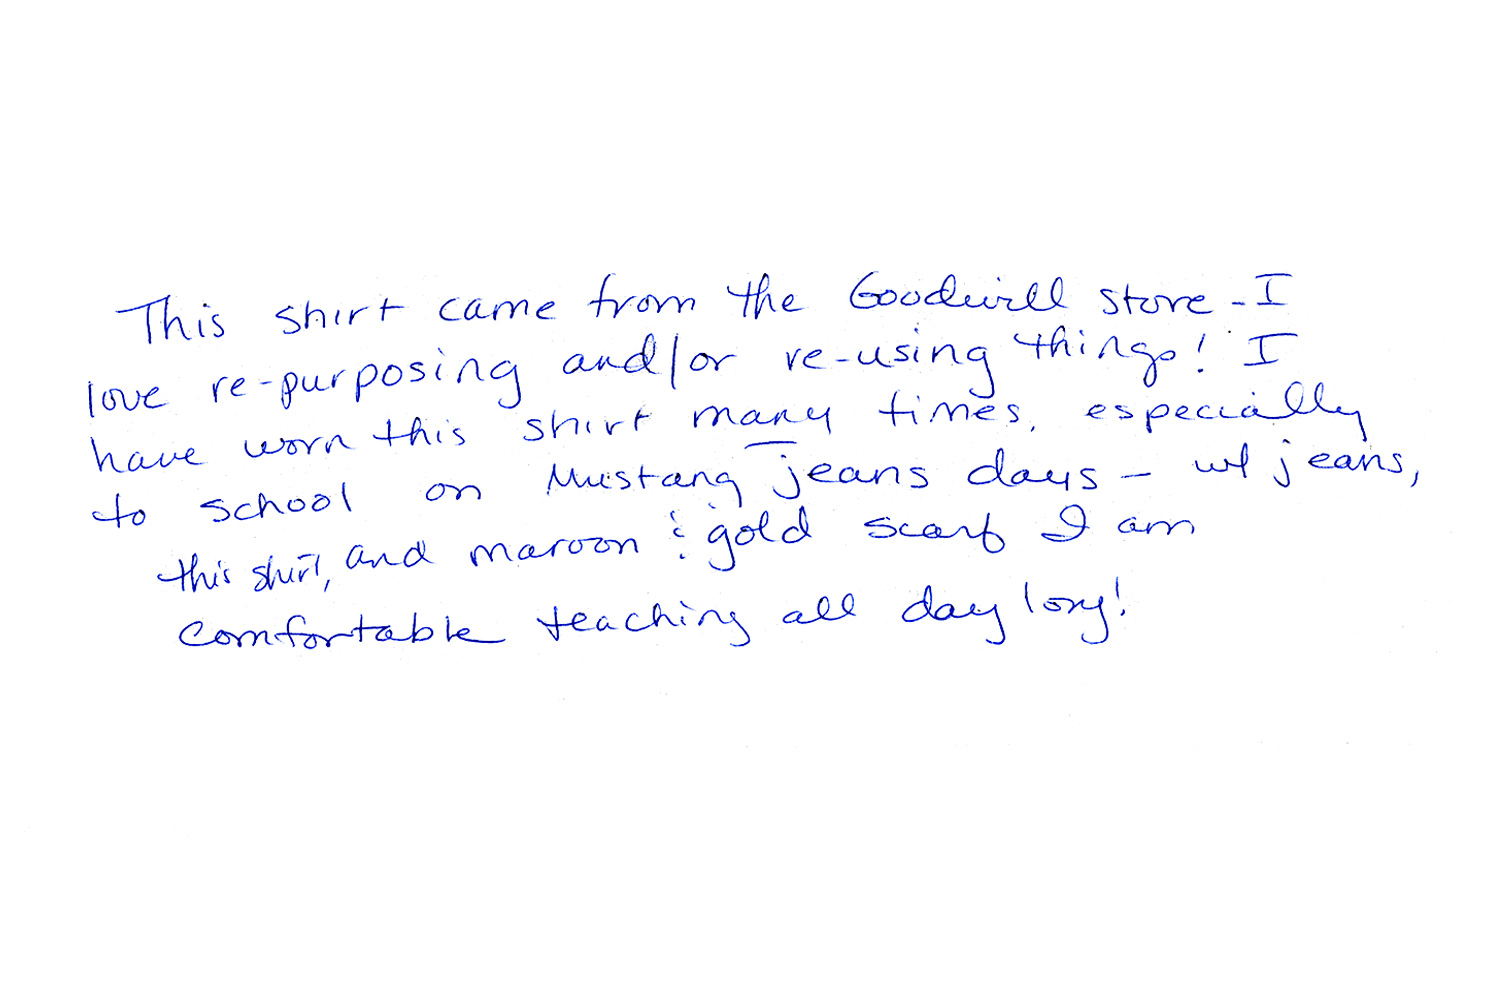 This shirt came from the Goodwill store - I
love re-purposing and/or re-using things! I
have worn this shirt many times, especially
to school on Mustang jeans days - w/ jeans,
this shirt, and maroon & gold scarf I am
comfortable teaching all day long!